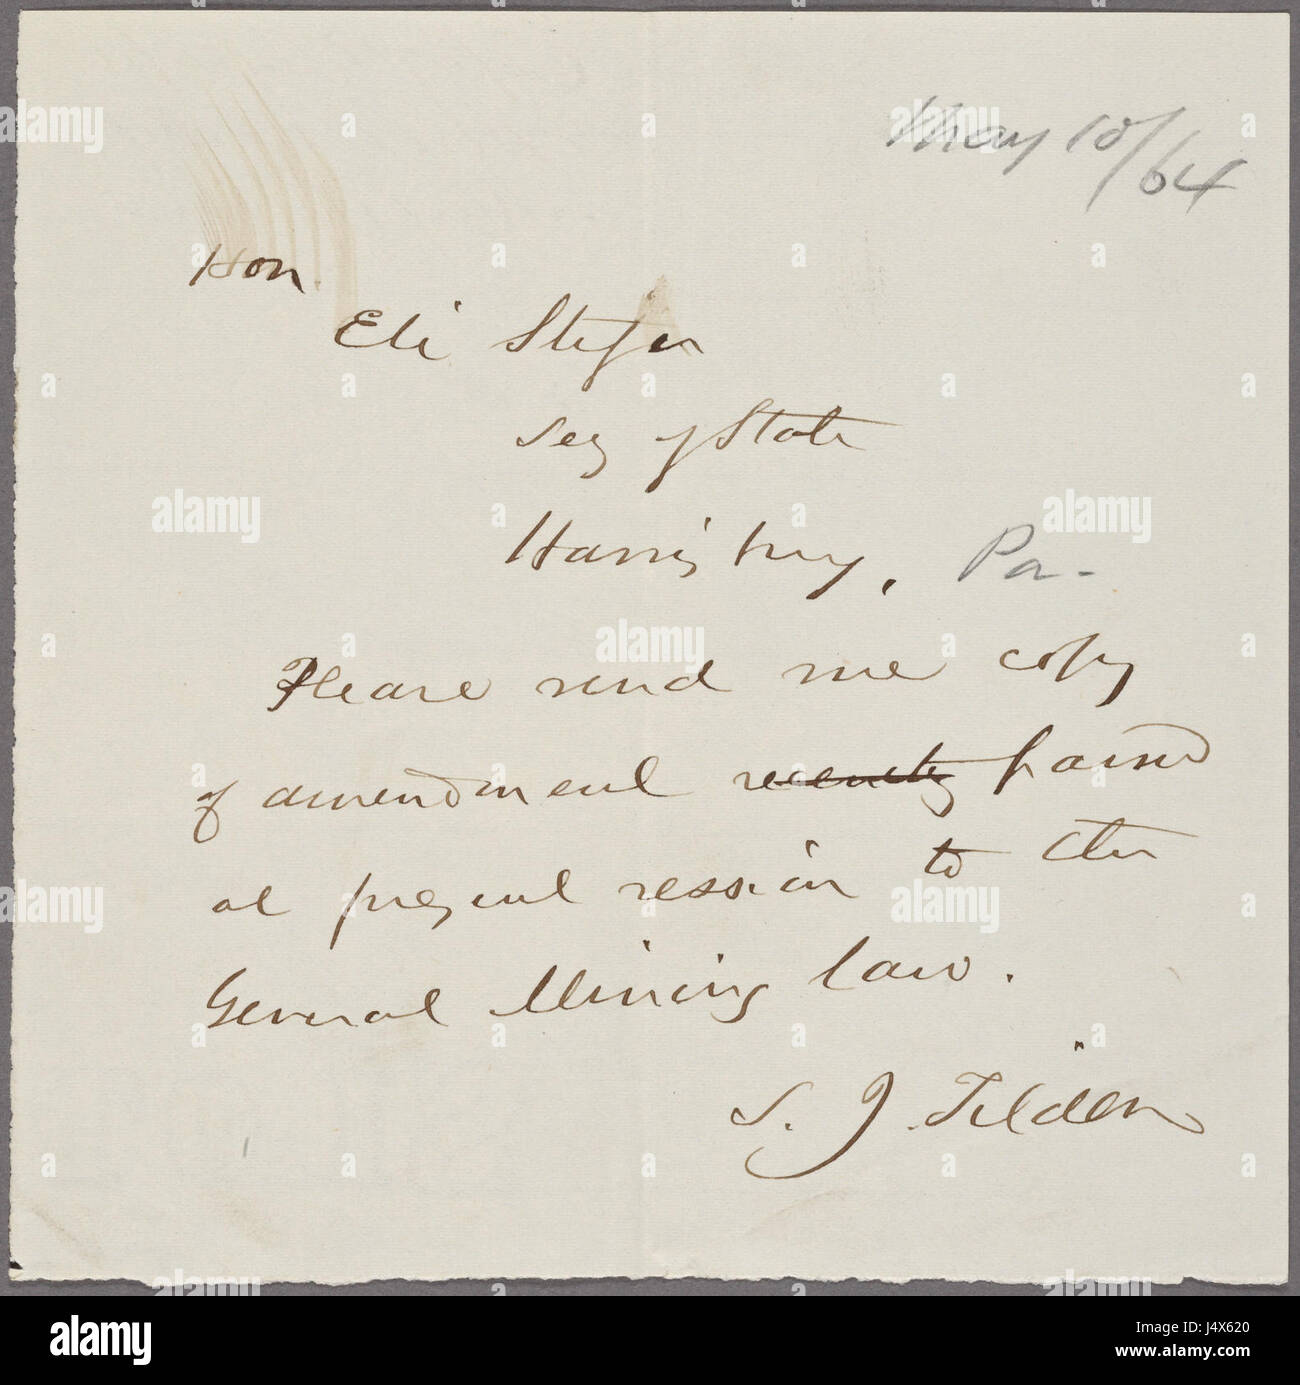 May 10/64
Hon.
Eli Slifer
Secy of State
Harrisburg, Pa-
Please send me copy
of amendment recently passed
at present session to the
General Mining law.
S. J. Tilden
alamy
Image ID: J4X620
www.alamy.com